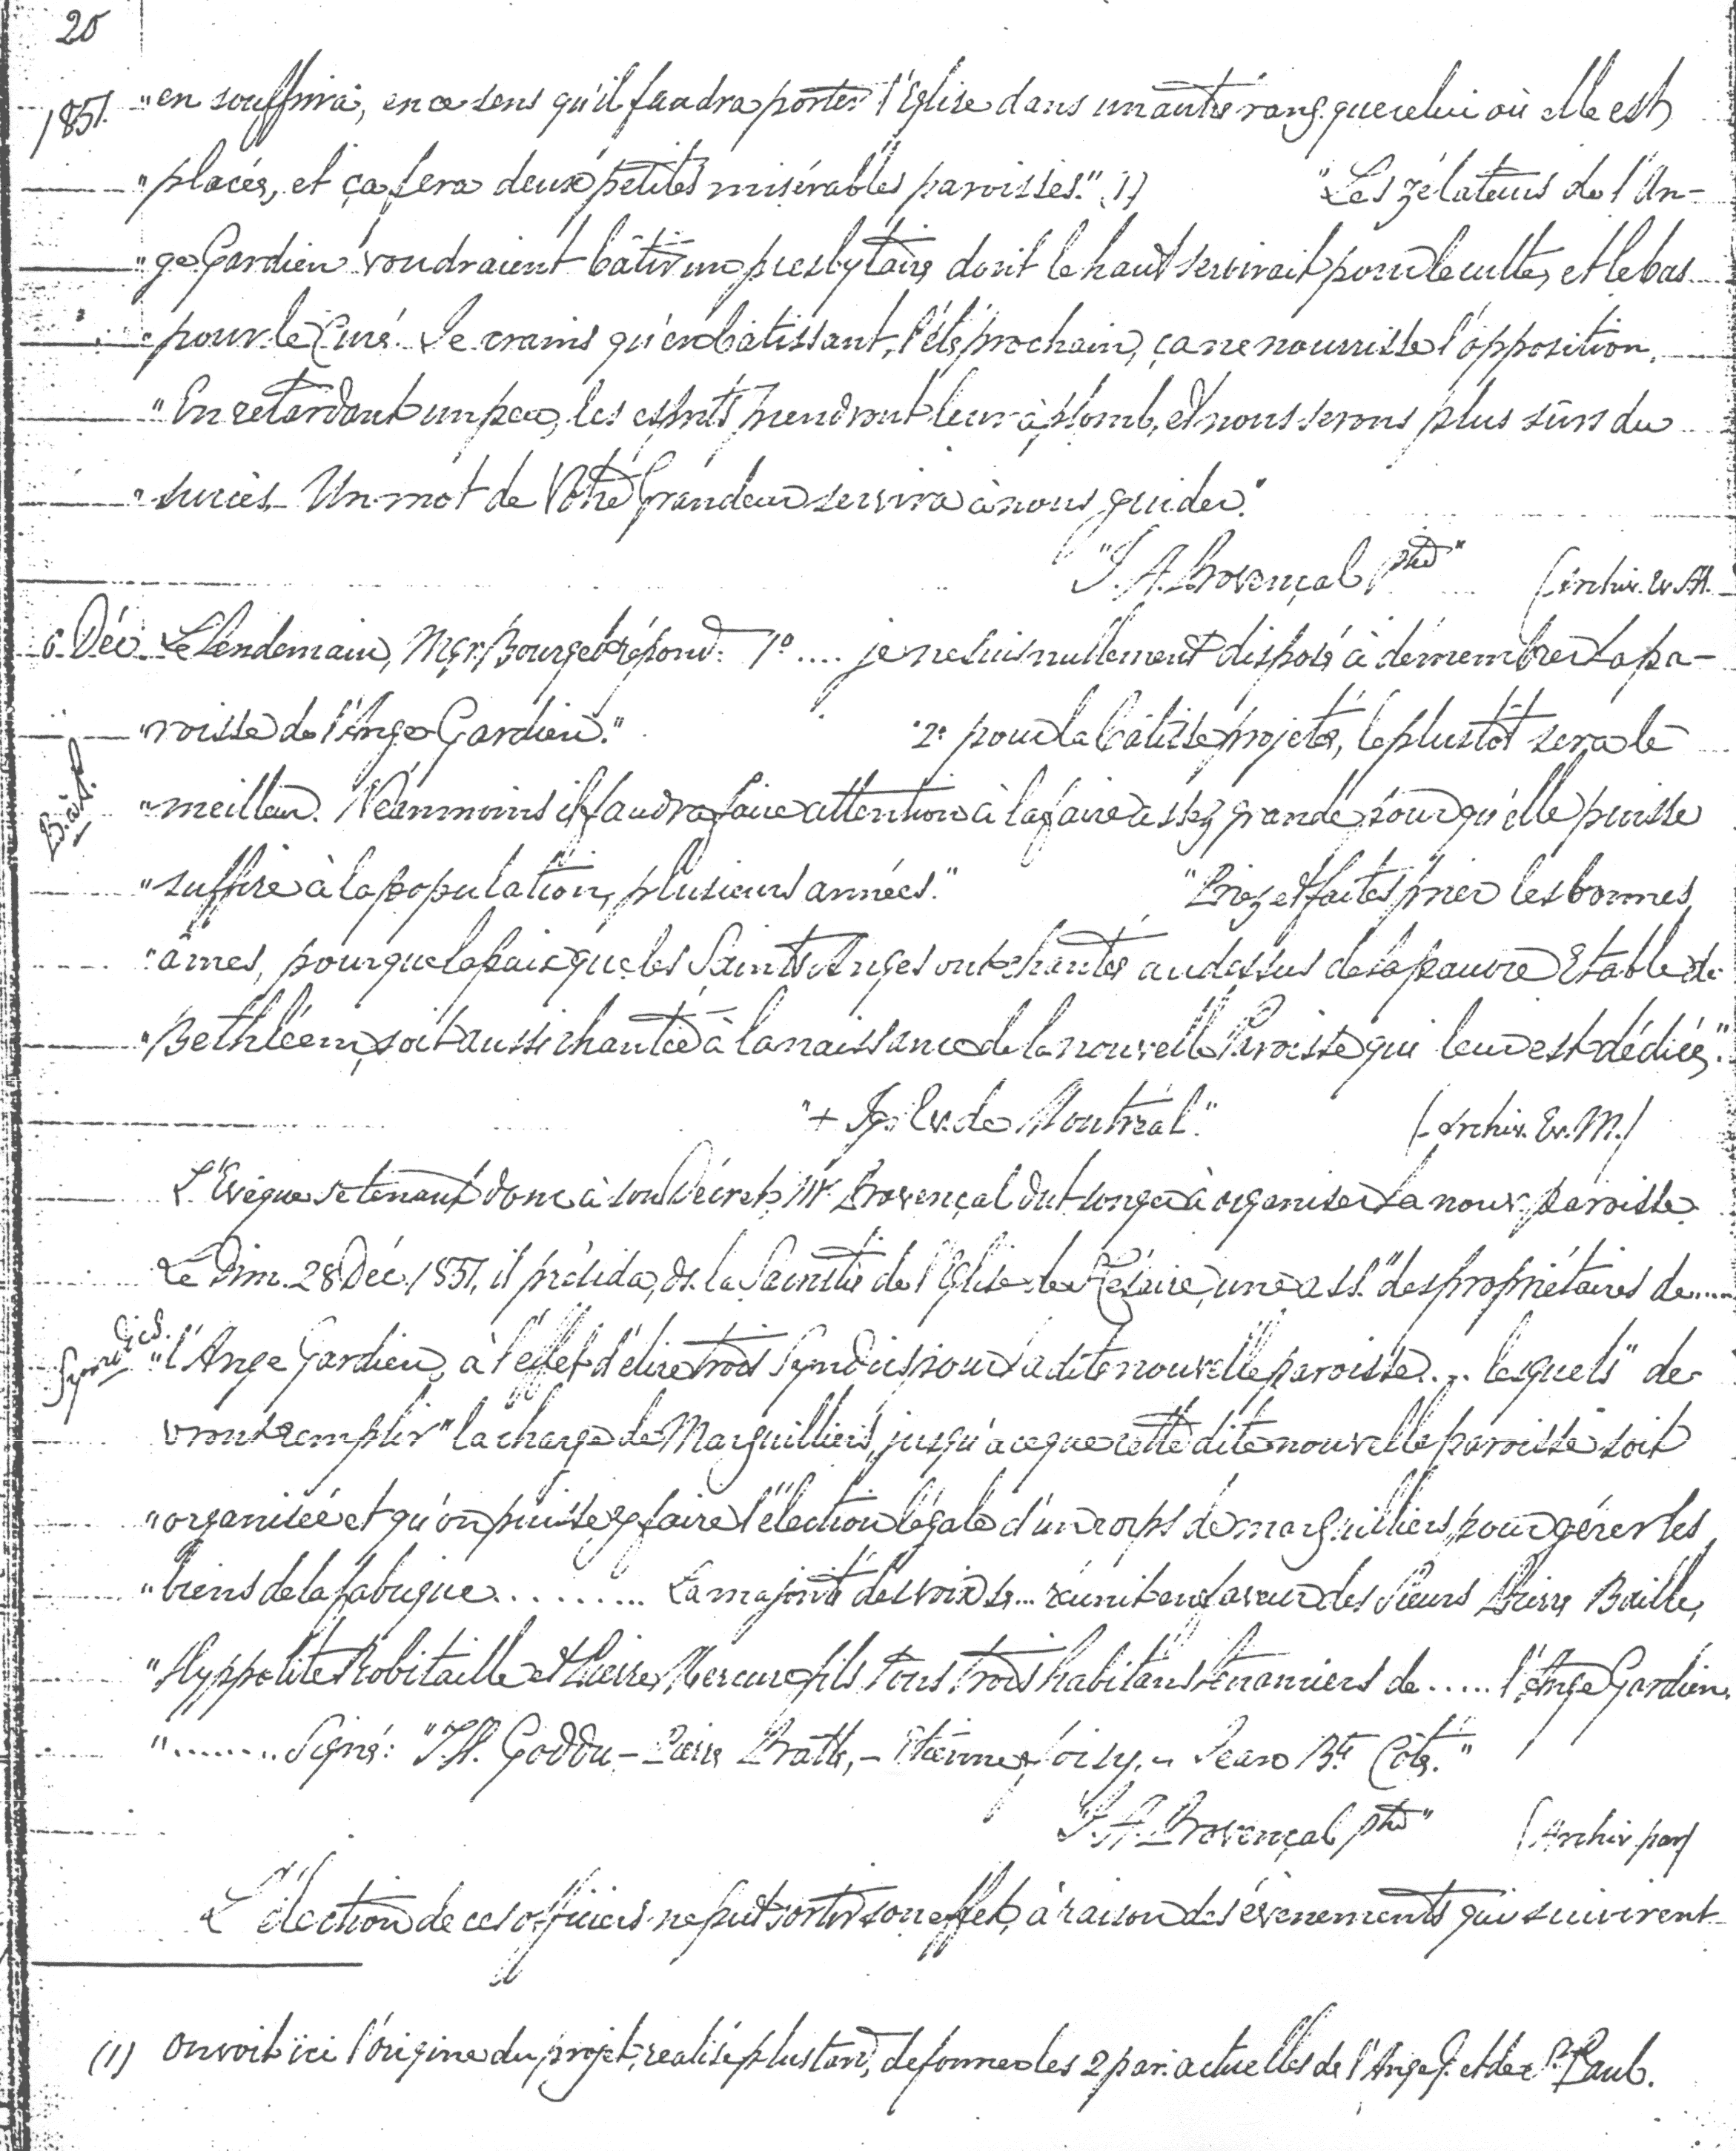 20
1851. "en souffrira, en ce sens qu'il faudra porter l'Eglise dans un autre rang que celui où elle est
"placée, et ça fera deux petites misérables paroisses." (1) "Les zélateurs de l'An-
"ge Gardien voudraient bâtir un presbytaire, dont le haut servirait pour le culte, et le bas
"pour le Curé. Je crains qu'en bâtissant, l'été prochain, ça ne nourrisse l'opposition.
"En retardant un peu, les esprits prendront leur à plomb, et nous serons plus sûrs du
"succès. Un mot de Votre Grandeur servira à nous guider."
"J. A. Provençal ptre" (Archiv. Ev. M.
6 Déc. Le lendemain, Mgr. Bourget répond: 1º .... je ne suis nullement disposé à démembrer la pa-
"roisse de l'Ange Gardien." "2º pour la bâtisse projetée, le plustôt sera le
Bâtis.
"meilleur. Néanmoins il faudra faire attention à la faire assez grande, pour qu'elle puisse
"suffire à la population, plusieurs années." "Priez et faites prier les bonnes
"âmes, pour que la paix que les Saints Anges ont chantée au dessus de la pauvre Etable de
"Bethléem, soit aussi chantée à la naissance de la nouvelle Paroisse qui leur est dédiée."
"+ Ig. Ev. de Montréal." (Archiv. Ev. M.)
L'Evêque se tenant donc à son Décret, Mr. Provençal dut songer à organiser la nouv. paroisse.
Le Dim. 28 Déc. 1851, il présida, ds. la Sacristie de l'Eglise de Césaire, une ass. "des propriétaires de ....
Syndics.
"l'Ange Gardien, à l'effet d'élire trois Syndics pour la dite nouvelle paroisse ... lesquels" de-
vront remplir "la charge de Marguilliers, jusqu'à ce que cette dite nouvelle paroisse soit
"organisée et qu'on puisse y faire l'élection légale d'un corps de marguilliers, pour gérer les
"biens de la fabrique ......... La majorité des voix se ... réunit en faveur des Sieurs Pierre Baille,
"Hyppolite Robitaille et Pierre Mercure fils tous trois habitans tenanciers de ..... l'Ange Gardien,
"........ Signé: "J. H. Goddu – Pierre Bratte, – Etienne Foisy, – Jean Bte Côté."
"J. A. Provençal ptre" (Archiv. par)
L'élection de ces officiers ne put sortir son effet, à raison des événements qui suivirent
(1) On voit ici l'origine du projet, réalisé plus tard, de former les 2 par. actuelles de l'Ange G. et de St. Paul.